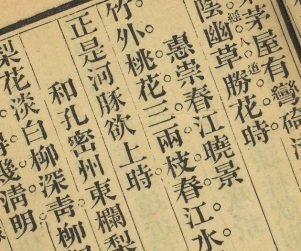 茅屋有彎碕
陰幽草勝花時。
經人道
惠崇春江曉景
竹外桃花三兩枝。春江水
正是河豚欲上時
和孔密州東欄梨
梨花淡白柳深青。柳
幾清明